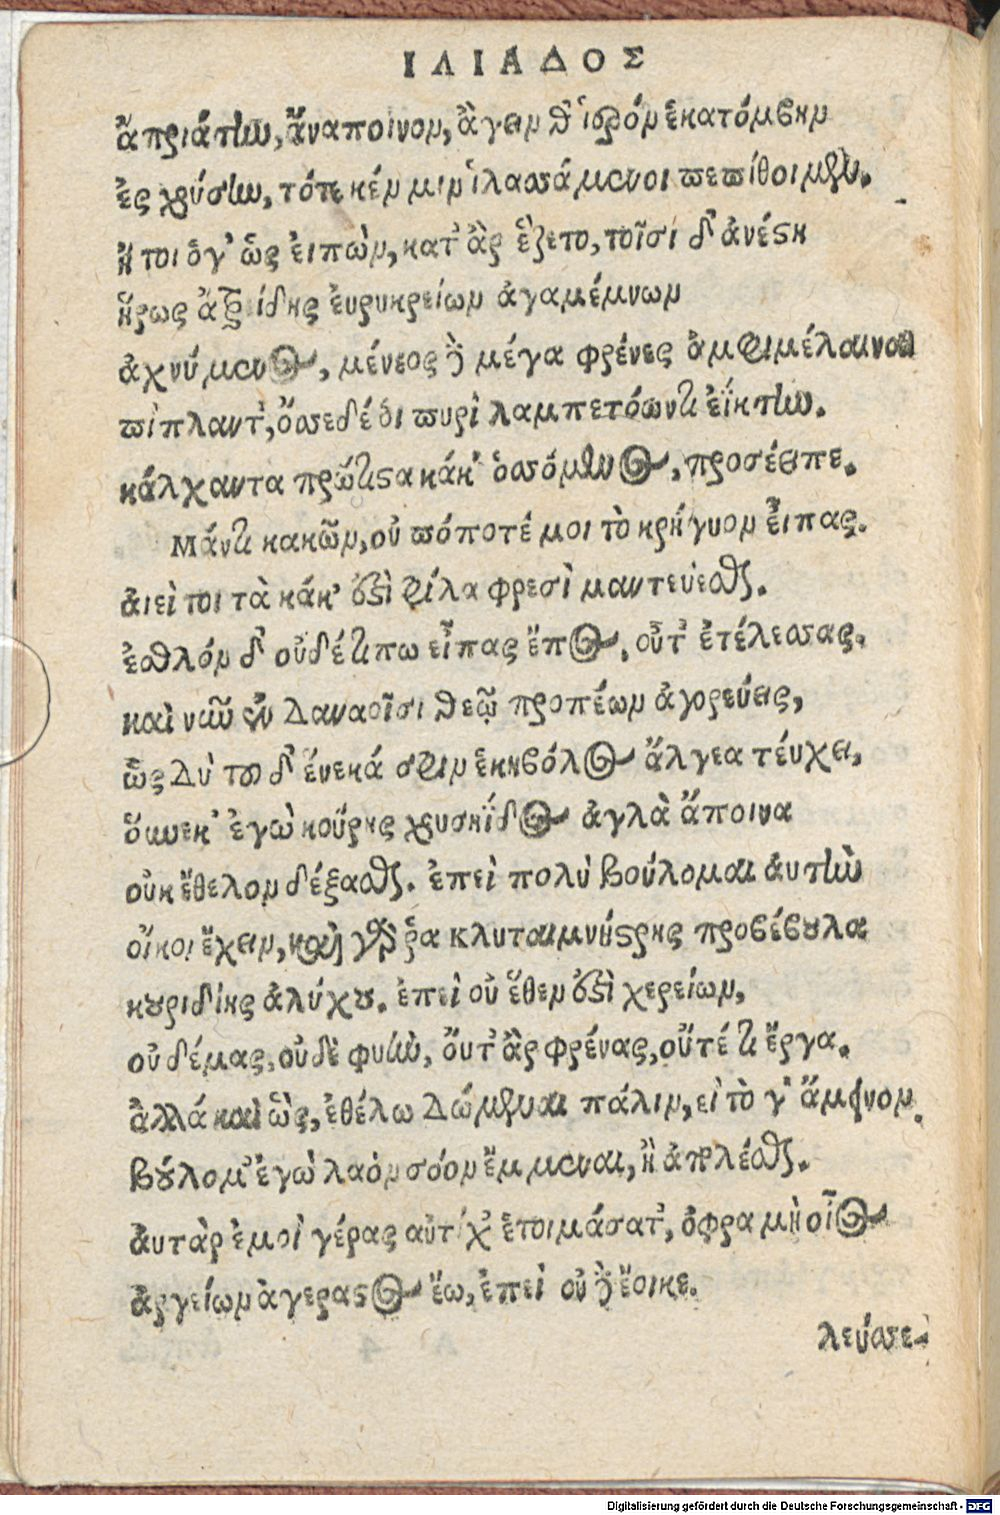 ΙΛΙΑΔΟΣ
ἀπριάτην, ἀνάποινον, ἄγειν θ' ἱερὸν ἑκατόμβην
ἐς χρύσην, τότε κέν μιν ἱλασσάμενοι πεπίθοιμεν.
ἤτοι ὅγ' ὣς εἰπὼν, κατ' ἂρ ἕζετο, τοῖσι δ' ἀνέστη
ἥρως ἀτρείδης ἐυρυκρείων ἀγαμέμνων
ἀχνύμενος, μένεος δὲ μέγα φρένες ἀμφιμέλαιναι
πίπλαντ', ὄσσε δέ οἱ πυρὶ λαμπετόωντι ἐΐκτην.
κάλχαντα πρώτιστα κάκ' ὀσσόμενος, προσέειπε.
Μάντι κακῶν, οὐ πόποτέ μοι τὸ κρήγυον εἶπας.
ἀιεί τοι τὰ κάκ' ἐστὶ φίλα φρεσὶ μαντεύεσθαι.
ἐσθλὸν δ' οὐδέ τι πω εἶπας ἔπος, οὔτ' ἐτέλεσσας.
καὶ νῦν ἐν Δαναοῖσι θεῷ προπέων ἀγορεύεις,
ὣς Δὴ τοῦδ' ἕνεκά σφιν ἑκηβόλος ἄλγεα τέυχει,
οὕνεκ' ἐγὼ κούρης χρυσηΐδος ἀγλὰ ἄποινα
οὐκ ἔθελον δέξασθαι. ἐπεὶ πολὺ βούλομαι ἀυτὴν
οἴκοι ἔχειν, καὶ γάρ ῥα κλυταιμνήστρης προβέβουλα
κουριδίης ἀλόχου. ἐπεὶ οὐ ἕθεν ἐστὶ χερείων,
οὐ δέμας, οὐδὲ φυὴν, ὄυτ' ἂρ φρένας, οὔτέ τι ἔργα.
ἀλλά καὶ ὣς, ἐθέλω Δώμεναι πάλιν, εἰ τό γ' ἄμεινον.
βούλομ' ἐγὼ λαὸν σόον ἔμμεναι, ἢ ἀπολέσθαι.
ἀυτὰρ ἐμοὶ γέρας αὐτίχ' ἑτοιμάσατ', ὄφρα μὴ οἶος
ἀργείων ἀγέραστος ἔω, ἐπεὶ οὐδὲ ἔοικε.
λεύσσε-
Digitalisierung gefördert durch die Deutsche Forschungsgemeinschaft - DFG